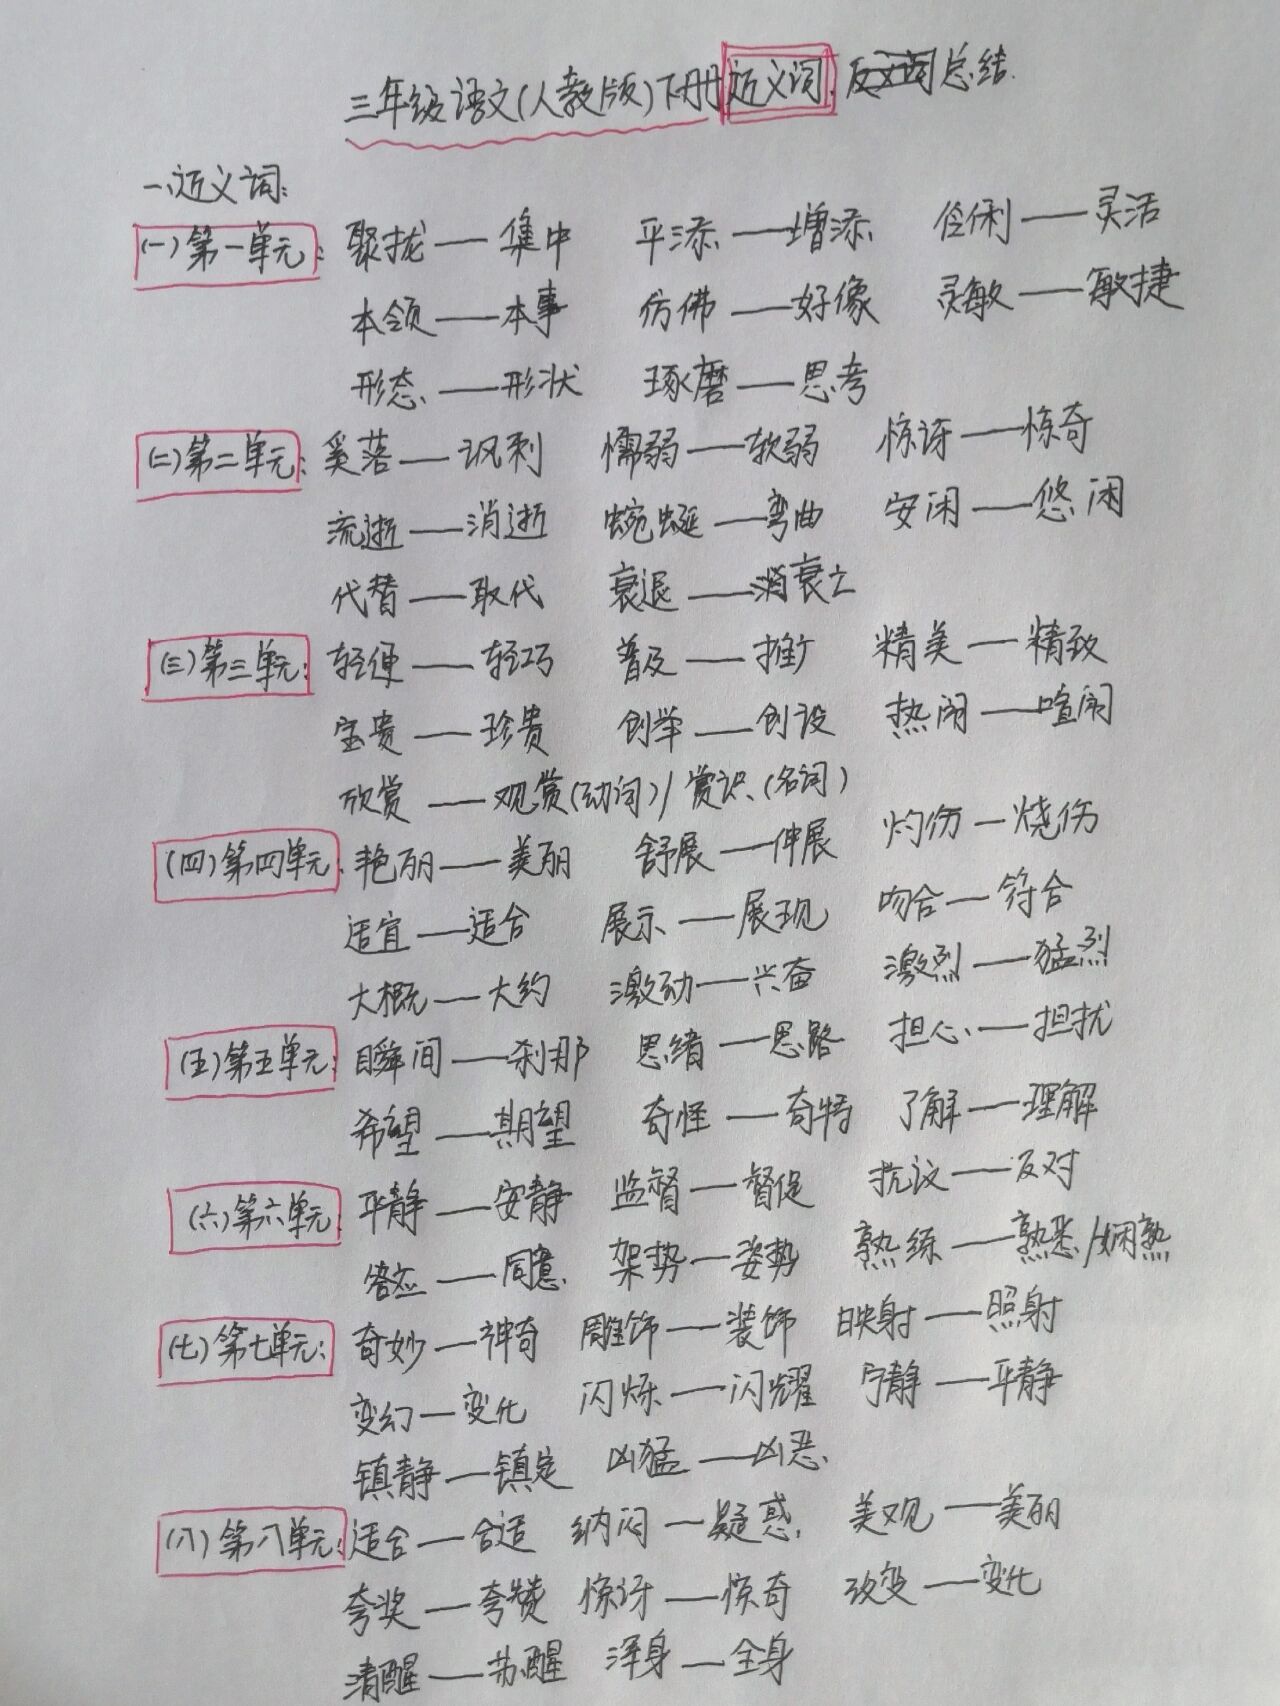 三年级语文(人教版)下册近义词、反义词总结.
一、近义词:
(一)第一单元: 聚拢——集中 平添——增添 伶俐——灵活
本领——本事 仿佛——好像 灵敏——敏捷
形态——形状 琢磨——思考
(二)第二单元: 奚落——讽刺 懦弱——软弱 惊讶——惊奇
流逝——消逝 蜿蜒——弯曲 安闲——悠闲
代替——取代 衰退——衰亡
(三)第三单元: 轻便——轻巧 普及——推广 精美——精致
宝贵——珍贵 创举——创设 热闹——喧闹
欣赏——观赏(动词)/赏识(名词)
(四)第四单元: 艳丽——美丽 舒展——伸展 灼伤——烧伤
适宜——适合 展示——展现 吻合——符合
大概——大约 激动——兴奋 激烈——猛烈
(五)第五单元: 瞬间——刹那 思绪——思路 担心——担扰
希望——期望 奇怪——奇特 了解——理解
(六)第六单元: 平静——安静 监督——督促 抗议——反对
答应——同意 架势——姿势 熟练——熟悉/娴熟
(七)第七单元: 奇妙——神奇 雕饰——装饰 映射——照射
变幻——变化 闪烁——闪耀 宁静——平静
镇静——镇定 凶猛——凶恶
(八)第八单元: 适合——合适 纳闷——疑惑 美观——美丽
夸奖——夸赞 惊讶——惊奇 改变——变化
清醒——苏醒 浑身——全身